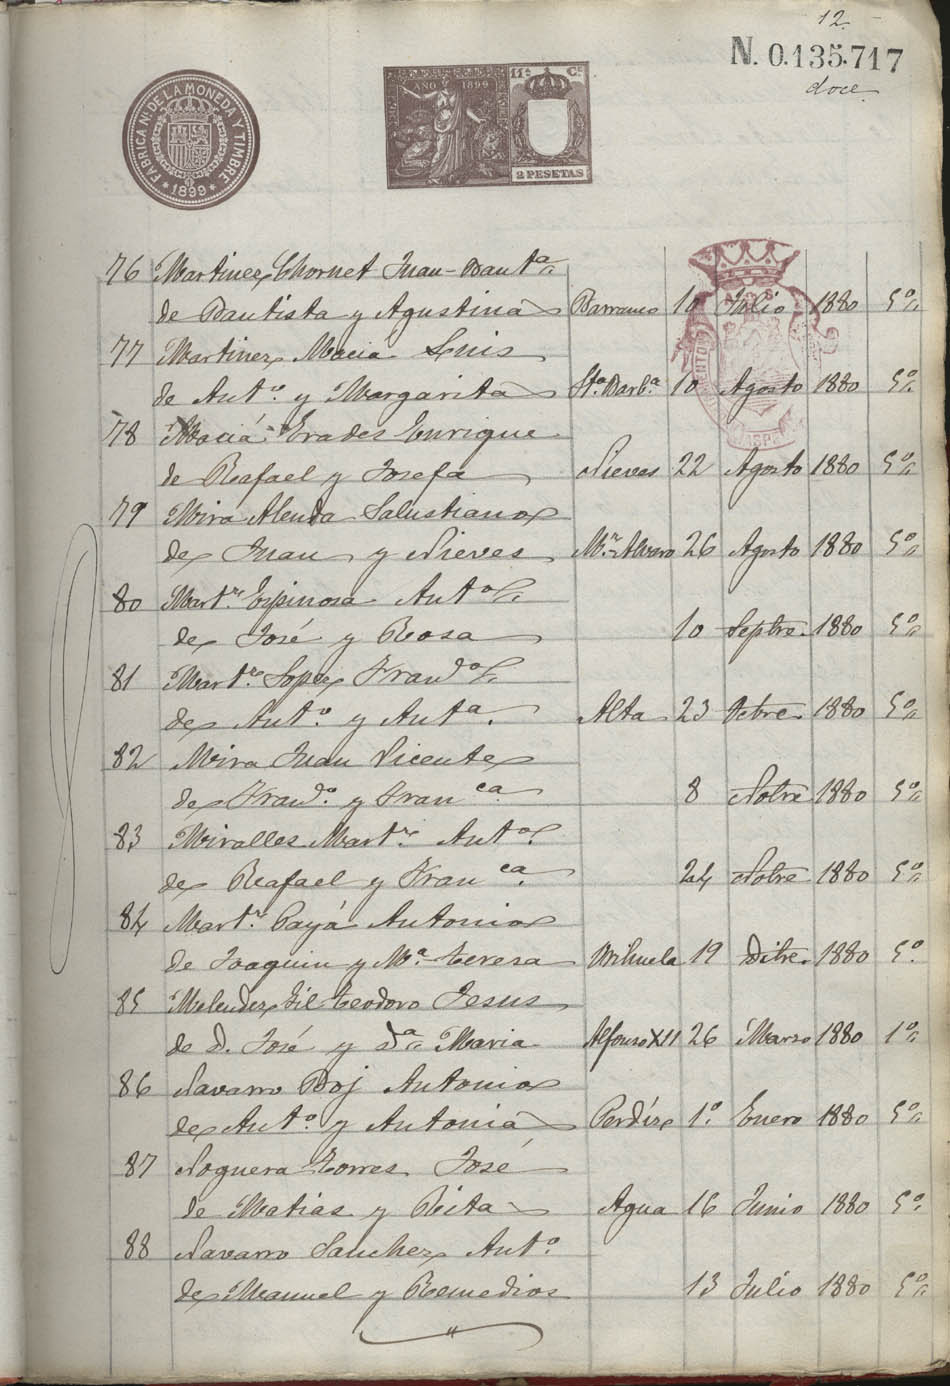 12.
N. 0.135.717
doce
FABRICA NL. DE LA MONEDA Y TIMBRE
1899
AÑO 1899
11ª Cª
2 PESETAS
76 Martinez Chornet Juan-Bautª
de Bautista y Agustina Barranco 10 Julio 1880 5º
77 Martinez Maciá Luis
de Antº y Margarita Stª Barbª 10 Agosto 1880 5º
78 Maciá Erades Enrique
de Rafael y Josefa Nieves 22 Agosto 1880 5º
79 Mira Alenda Salustiano
de Juan y Nieves Mr. Alvaro 26 Agosto 1880 5º
80 Martz. Espinosa Antº
de José y Rosa 10 Septre. 1880 5º
81 Martz. Lopez Francº
de Antº y Antª. Alta 23 Octbre. 1880 5º
82 Mira Juan Vicente
de Francº y Franca. 8 Nobre 1880 5º
83 Miralles Martz. Antº
de Rafael y Franca. 24 Nobre 1880 5º
84 Martz. Payá Antonio
de Joaquin y Mª Teresa Orihuela 19 Dibre. 1880 5º.
85 Melendez Gil Teodoro Jesus
de D. José y Dª Maria Alfonso XII 26 Marzo 1880 1º
86 Navarro Boj Antonio
de Antº y Antonia Perdíz 1º. Enero 1880 5º
87 Noguera Torres José
de Matias y Rita Agua 16 Junio 1880 5º.
88 Navarro Sanchez Antº
de Manuel y Remedios 13 Julio 1880 5º